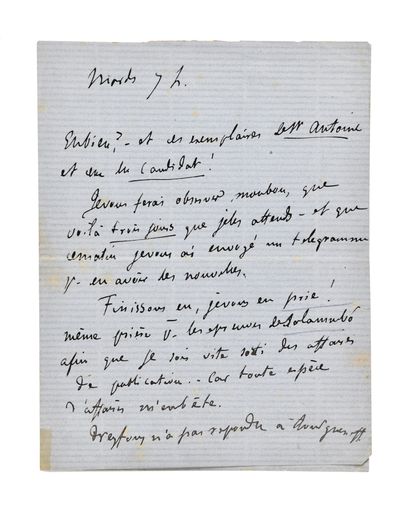 Mardi 7 h.
Eh bien? - et des exemplaires de St Antoine
et ceux du Candidat!
Je vous ferai observer, mon bon, que
voilà trois jours que je les attends - et que
ce matin je vous ai envoyé un telegramme
pr en avoir des nouvelles.
Finissons en, je vous en prie!
même prière pr les epreuves de Salammbô
afin que je sois vite sorti des affaires
de publication. - Car toute espèce
d'affaires m'embête.
Dreyfous n'a pas repondu à Tourgueneff